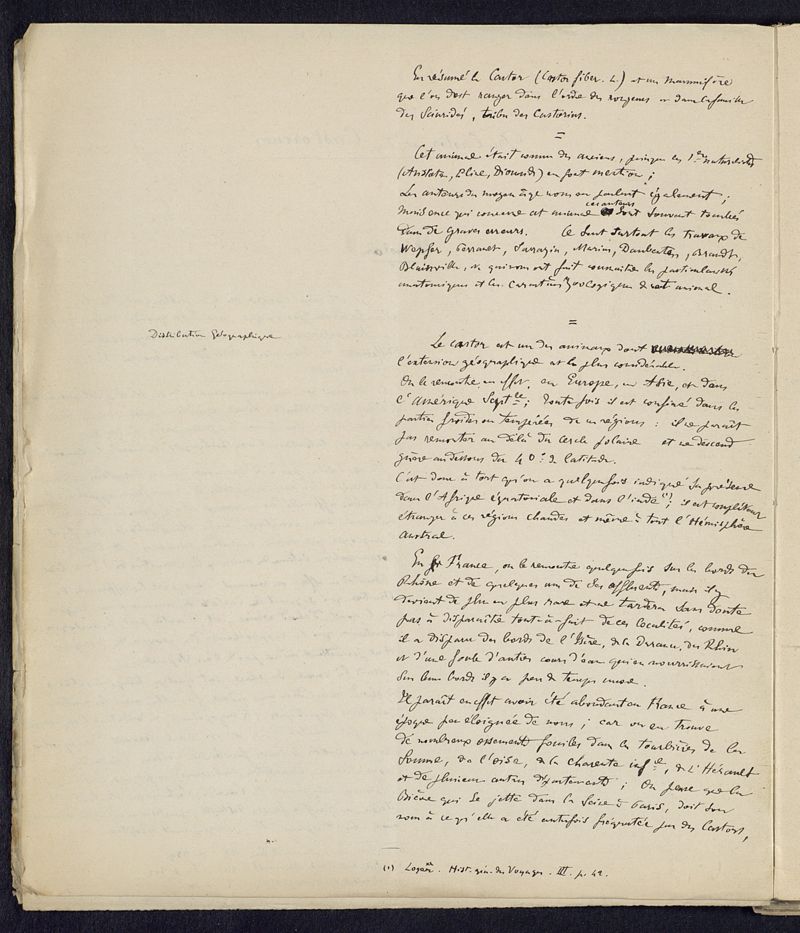 En résumé le Castor (Castor fiber. L.) est un Mammifère
que l'on doit ranger dans l'ordre des rongeurs et dans la famille
des Sciuridés, tribu des Castorins.
=
Cet animal était connu des anciens, puisque les 1ers naturalistes
(Aristote, Pline, Dioscoride) en font mention ;
Les auteurs du moyen âge nous en parlent également ;
Mais en ce qui concerne cet animal ces auteurs sont souvent tombés
dans de graves erreurs. Ce sont surtout les travaux de
Wepfer, Perrault, Sarrazin, Marius, Daubenton, Brandt,
Blainville, qui nous ont fait connaître les particularités
anatomiques et les caractères zoologiques de cet animal.
=
Distribution géographique
Le castor est un des animaux dont
l'extension géographique est la plus considérable.
On le rencontre en effet, en Europe, en Asie, et dans
l'Amérique Septle ; Toutefois il est confiné dans les
parties froides ou tempérées de ces régions : il ne paraît
pas remonter au delà du cercle polaire et ne descend
guère au dessous du 40° de latitude.
C'est donc à tort qu'on a quelquefois indiqué sa présence
dans l'Afrique équatoriale et dans l'Inde (1) ; il est complètement
étranger à ces régions chaudes et même à tout l'Hémisphère
austral.
En France, on le rencontre quelquefois sur les bords du
Rhône et de quelques uns de ses affluents, mais il y
devient de plus en plus rare et ne tardera sans doute
pas à disparaître tout-à-fait de ces localités, comme
il a disparu des bords de l'Isère, de la Durance, du Rhin
et d'une foule d'autres cours d'eau qui en nourrissaient
sur leurs bords il y a peu de temps encore.
Il paraît en effet avoir été abondant en France à une
époque peu éloignée de nous ; car on en trouve
de nombreux ossements fossiles dans les tourbières de la
Somme, de l'Oise, de la Charente infre, de l'Hérault
et de plusieurs autres départements ; On pense que la
Bièvre qui se jette dans la Seine à Paris, doit son
nom à ce qu'elle a été autrefois fréquentée par des Castors,
(1) Hist. gén. des Voyages. III. p. 42.